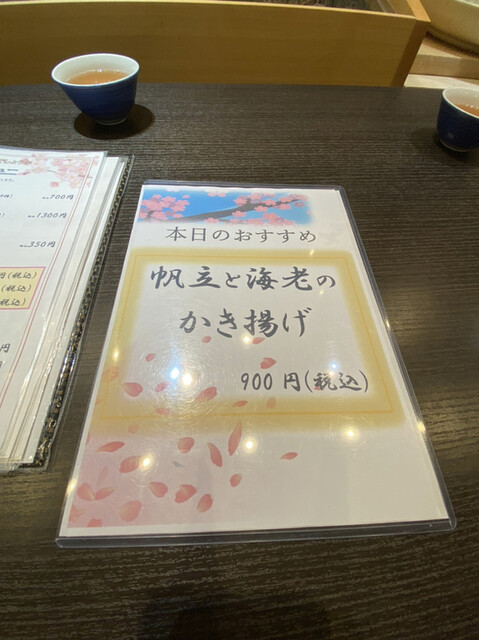 本日のおすすめ
帆立と海老の
かき揚げ
900円(税込)
ュー
700円
1300円
350円
円(税込)
(税込)
税込)
円
円